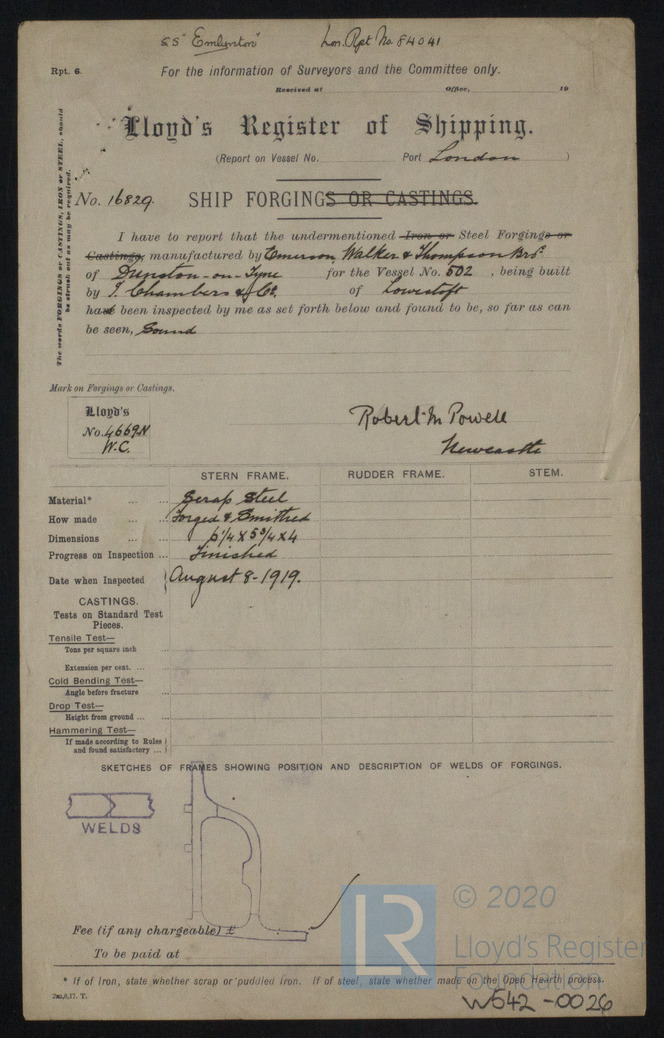 SS "Emlynton" Lon. Rpt No. 84041
Rpt. 6.
For the information of Surveyors and the Committee only.
Received at Office, 19
Lloyd's Register of Shipping.
(Report on Vessel No. Port London )
The words FORGINGS or CASTINGS, IRON or STEEL, should be struck out as may be required.
No. 16829. SHIP FORGINGS OR CASTINGS.
I have to report that the undermentioned Iron or Steel Forgings or
Castings, manufactured by Emerson, Walker & Thompson Bros.
of Dunston-on-Tyne for the Vessel No. 502, being built
by J. Chambers & Co. of Lowestoft
have been inspected by me as set forth below and found to be, so far as can
be seen, Sound
Mark on Forgings or Castings.
Lloyd's
No. 4669N
W.C.
Robert M Powell
Newcastle
STERN FRAME. RUDDER FRAME. STEM.
Material* ... ... Scrap Steel
How made ... ... Forged & Smithed
Dimensions ... ... 6 1/4 x 5 3/4 x 4
Progress on Inspection ... Finished
Date when Inspected August 8-1919.
CASTINGS.
Tests on Standard Test
Pieces.
Tensile Test—
Tons per square inch ...
Extension per cent. ...
Cold Bending Test—
Angle before fracture ...
Drop Test—
Height from ground ... ...
Hammering Test—
If made according to Rules
and found satisfactory ...
SKETCHES OF FRAMES SHOWING POSITION AND DESCRIPTION OF WELDS OF FORGINGS.
WELDS
Fee (if any chargeable) £
To be paid at
* If of Iron, state whether scrap or puddled iron. If of steel, state whether made on the Open Hearth process.
2m,8,17. T.
W542-0026
LR
© 2020
Lloyd's Register
Foundation